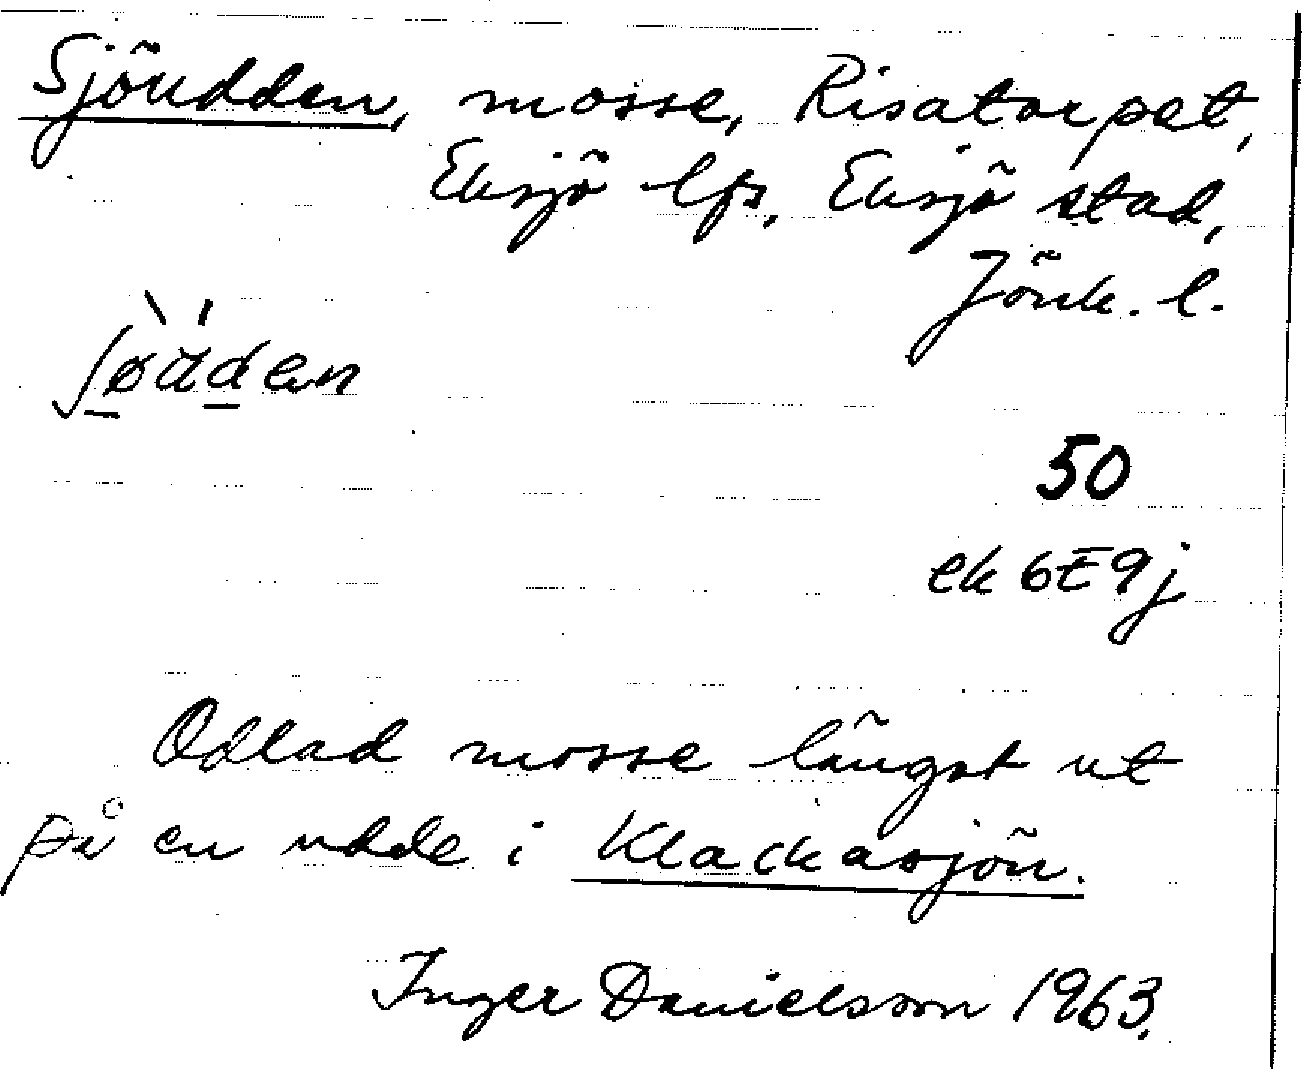 Sjöudden, mosse, Risatorpet,
Eksjö lfs, Eksjö stad,
Jönk. l.
50
ek 6E9j
Odlad mosse längst ut
på en udde i Klackasjön.
Inger Danielsson 1963.